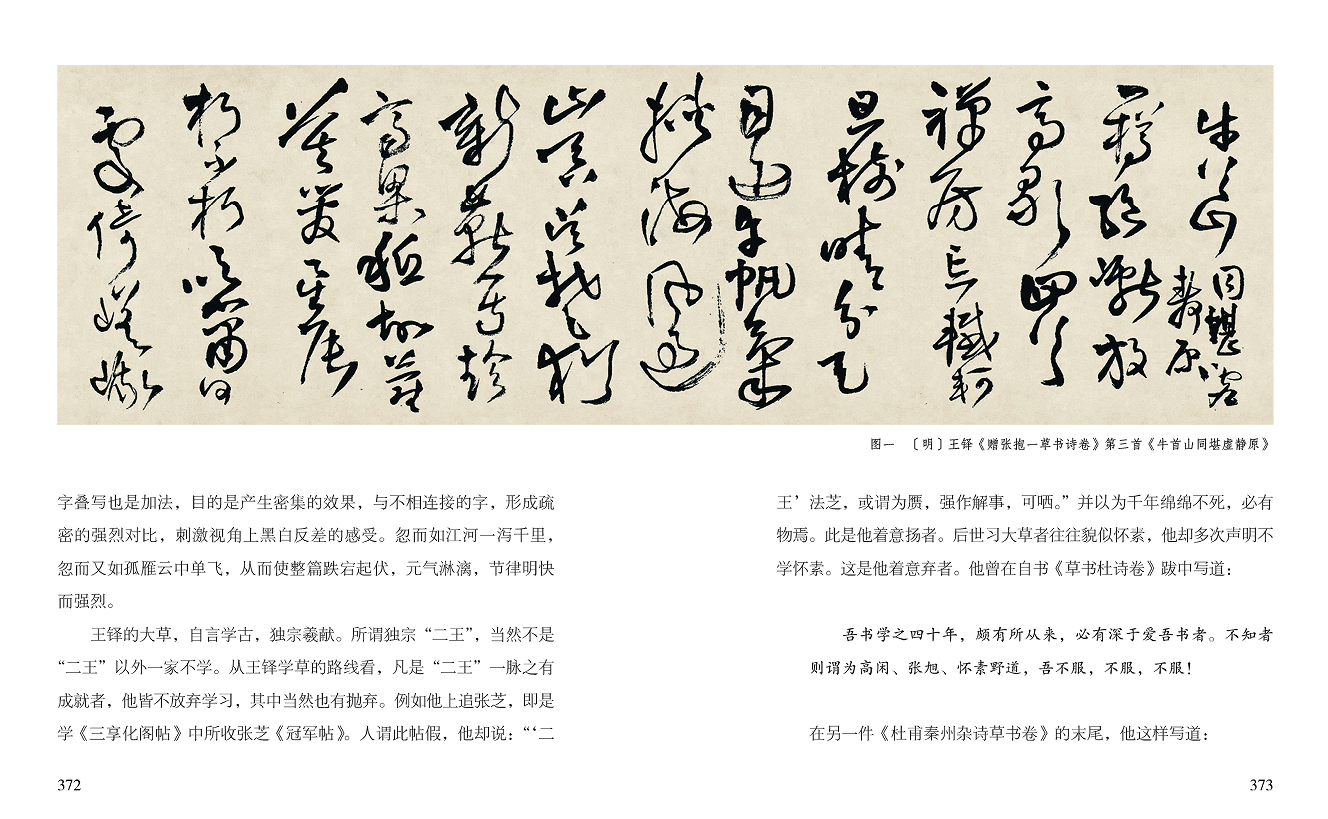 牛首山
禪房忘轗軻
朽不朽
倚嵯峨
图一　〔明〕王铎《赠张抱一草书诗卷》第三首《牛首山同堪虚静原》
字叠写也是加法，目的是产生密集的效果，与不相连接的字，形成疏
密的强烈对比，刺激视角上黑白反差的感受。忽而如江河一泻千里，
忽而又如孤雁云中单飞，从而使整篇跌宕起伏，元气淋漓，节律明快
而强烈。
王铎的大草，自言学古，独宗羲献。所谓独宗“二王”，当然不是
“二王”以外一家不学。从王铎学草的路线看，凡是“二王”一脉之有
成就者，他皆不放弃学习，其中当然也有抛弃。例如他上追张芝，即是
学《三享化阁帖》中所收张芝《冠军帖》。人谓此帖假，他却说：“‘二
372
王’法芝，或谓为赝，强作解事，可哂。”并以为千年绵绵不死，必有
物焉。此是他着意扬者。后世习大草者往往貌似怀素，他却多次声明不
学怀素。这是他着意弃者。他曾在自书《草书杜诗卷》跋中写道：
吾书学之四十年，颇有所从来，必有深于爱吾书者。不知者
则谓为高闲、张旭、怀素野道，吾不服，不服，不服！
在另一件《杜甫秦州杂诗草书卷》的末尾，他这样写道：
373